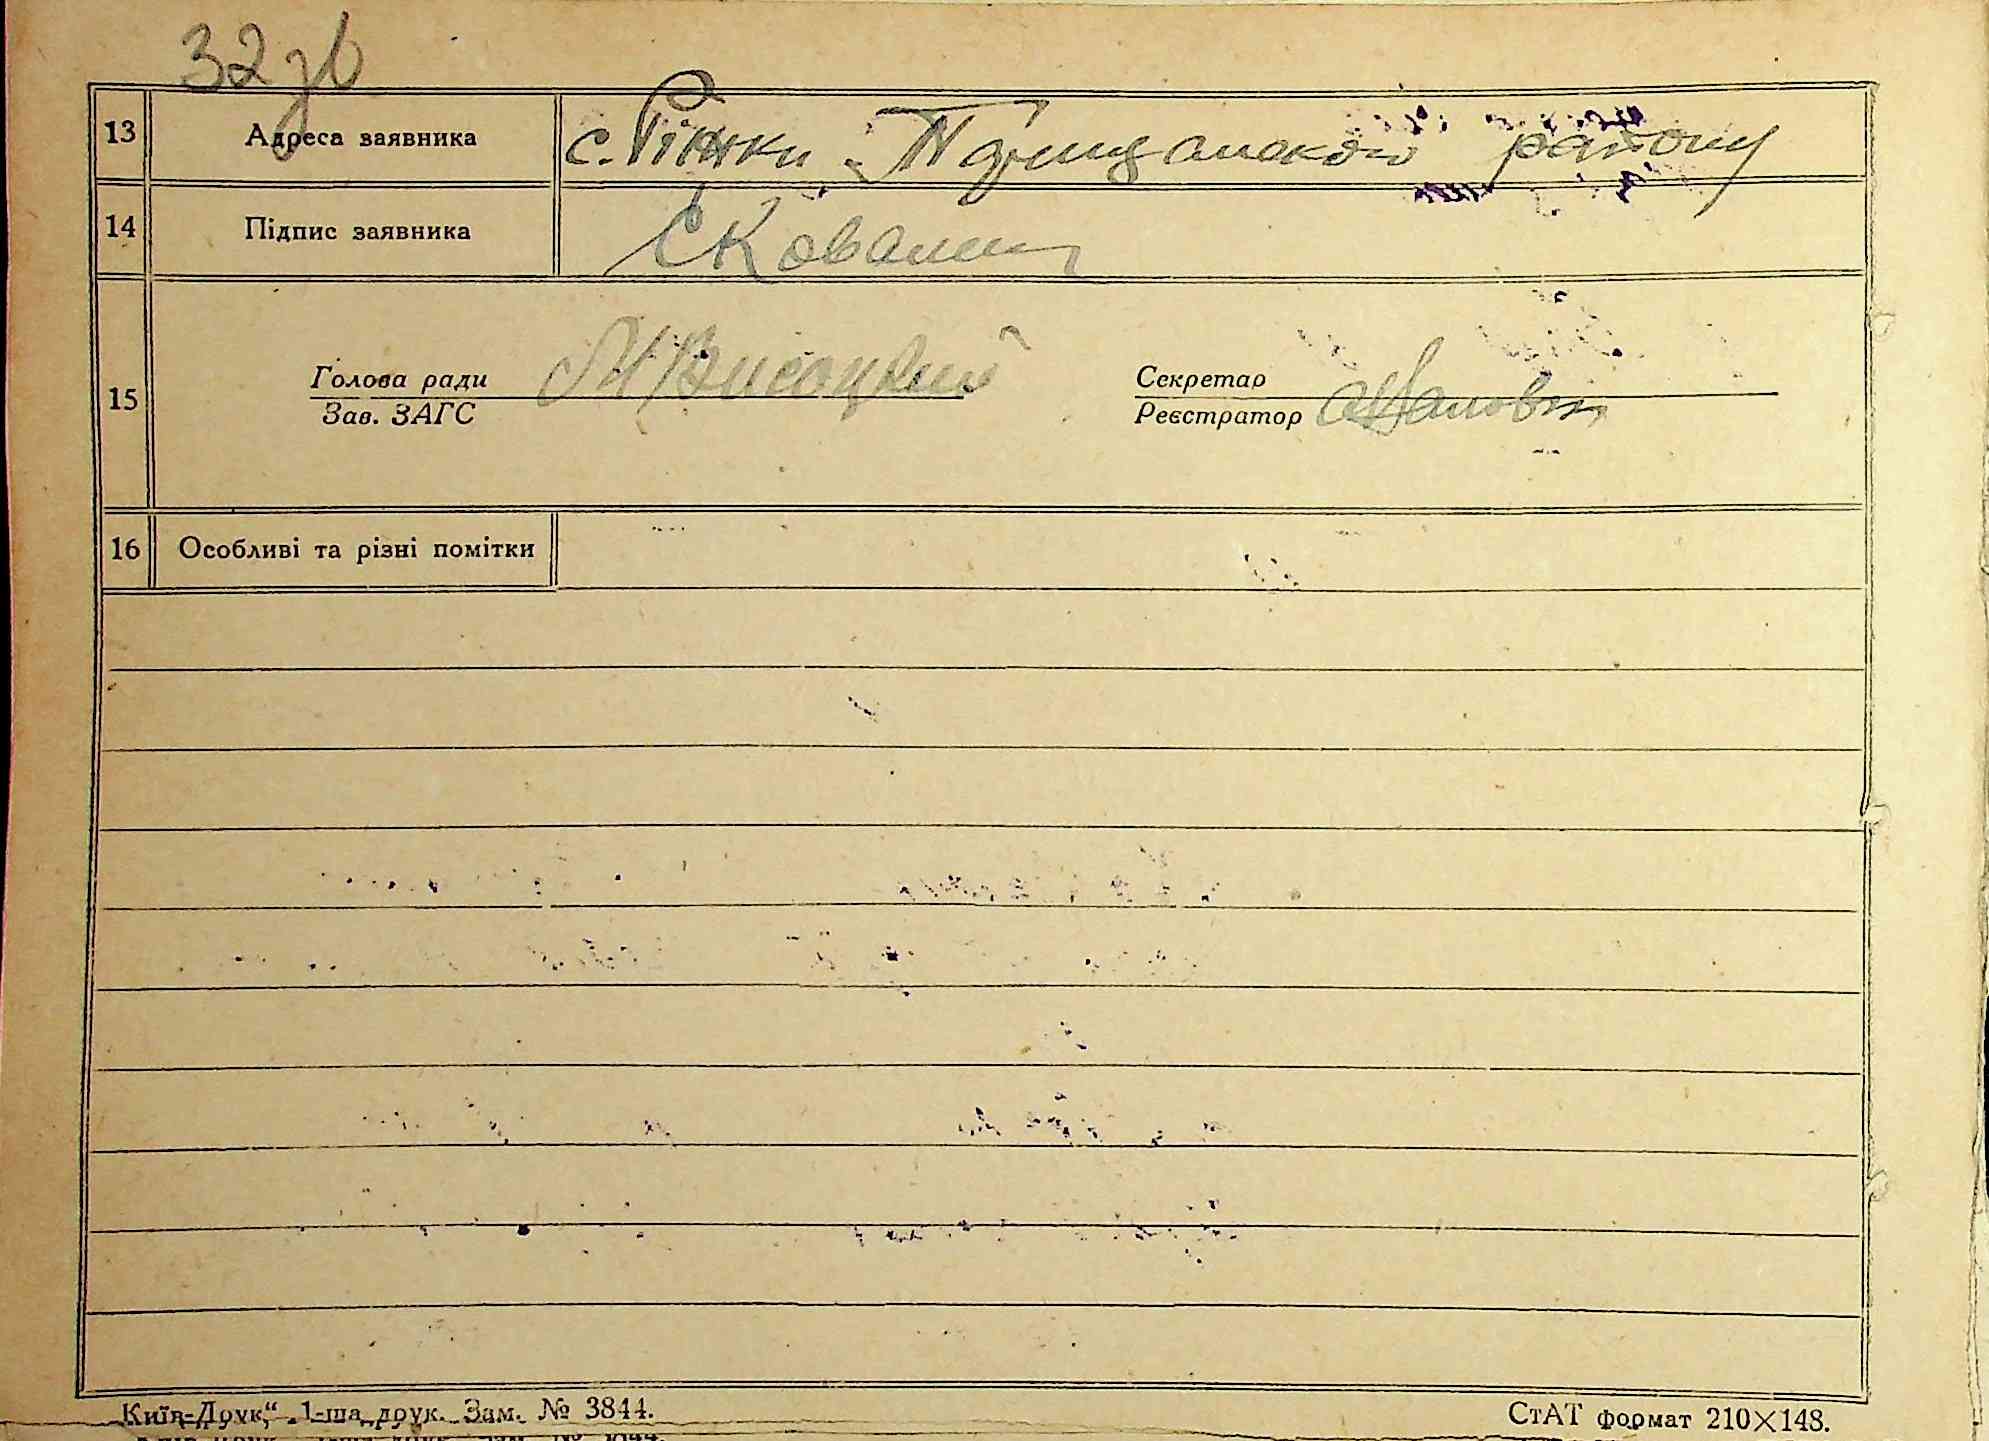 32 зв
13 Адреса заявника с. Ріжки Таращанського району
14 Підпис заявника С Ковалиш
Голова ради Високий Секретар
15 Зав. ЗАГС Реєстратор
16 Особливі та різні помітки
„Київ-Друк“ 1-ша друк. Зам. № 3844.
СтАТ формат 210×148.